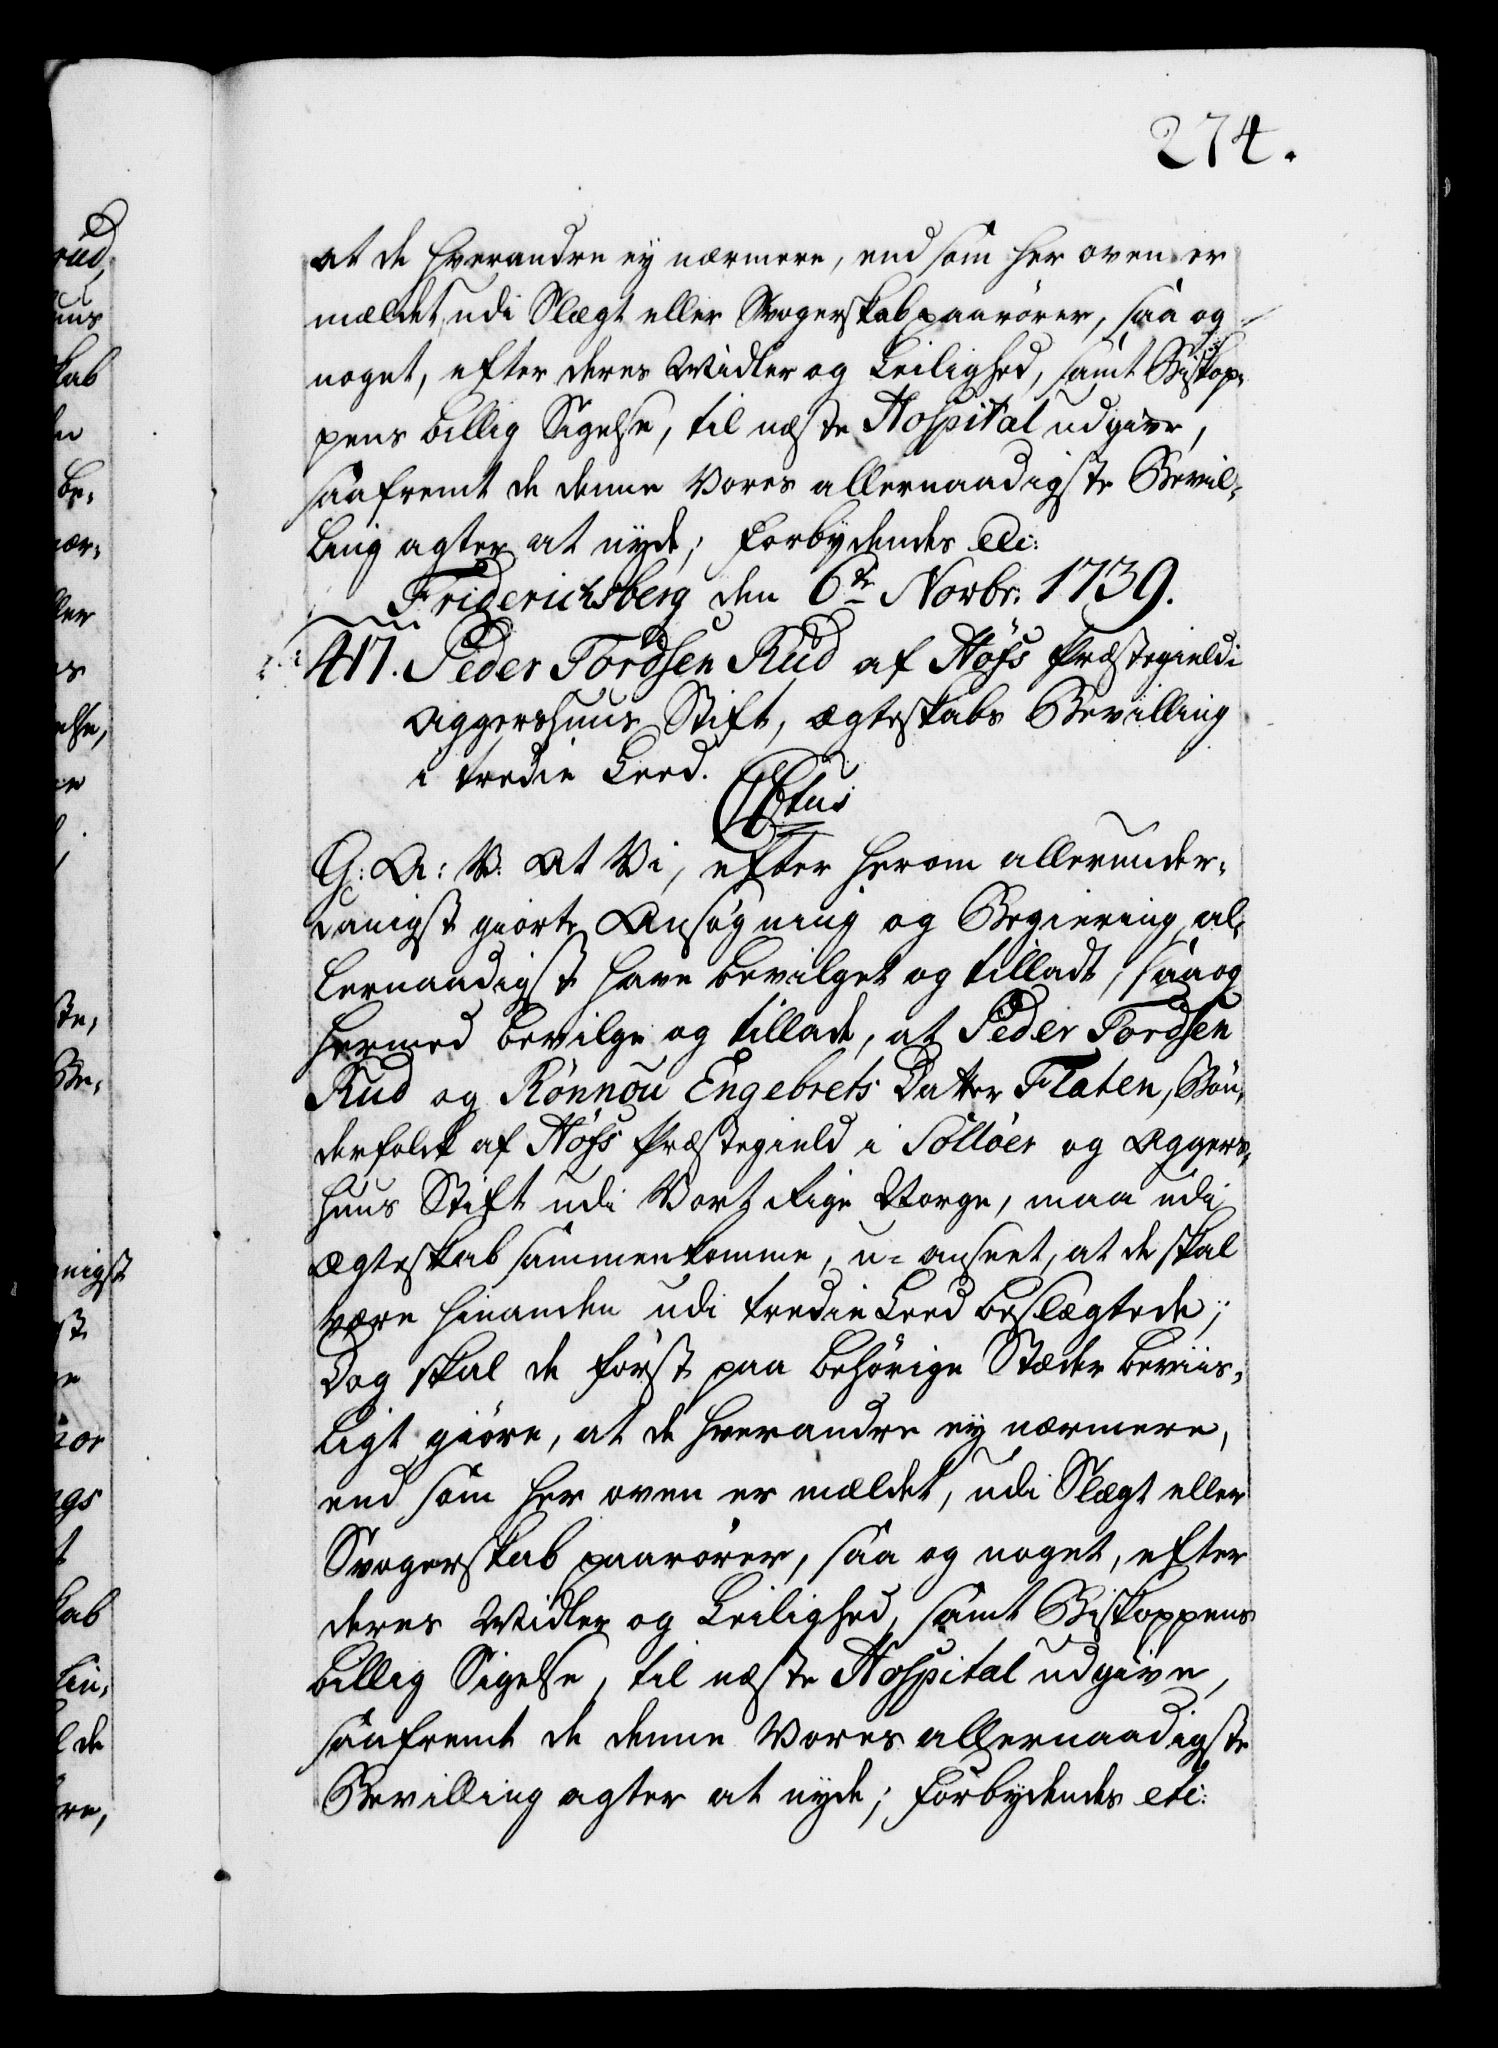 274.
at de hverandre ey nærmere, end som her oven er
mældet, udi Slægt eller Svogerskab paarörer, saa og
noget, efter deres Midler og Leilighed, samt Biskop-
pens billig Sigelse, til næste Hospital udgive,
saafremt de denne Vores allernaadigste Bevil-
ling agter at nyde; Forbydendes etc:
Friderichsberg den 6te Novbr: 1739.
417. Peder Tordsen Rud af Höfs Præstegield i
Aggershuus Stift, ægteskabs Bevilling
i tredie Leed.
G: A: V. At Vi, efter herom allerunder-
danigst giorte Ansögning og Begiering, al-
lernaadigst have bevilget og tilladt, saa og
hermed bevilge og tillade, at Peder Tordsen
Rud og Rönnou Engebrets Datter Flaten, Bön-
derfolck af Höfs Præstegield i Sollöer og Aggers-
huus Stift udi Vort Rige Norge, maa udi
ægteskab sammenkomme, u-anseet, at de skal
være hinanden udi tredie Leed beslægtede;
Dog skal de först paa behörige Stæder beviis-
ligt giöre, at de hverandre ey nærmere,
end som her oven er mældet, udi Slægt eller
Svogerskab paarörer, saa og noget, efter
deres Midler og Leilighed, samt Biskoppens
billig Sigelse, til næste Hospital udgive,
saafremt de denne Vores allernaadigste
Bevilling agter at nyde; Forbydendes etc: